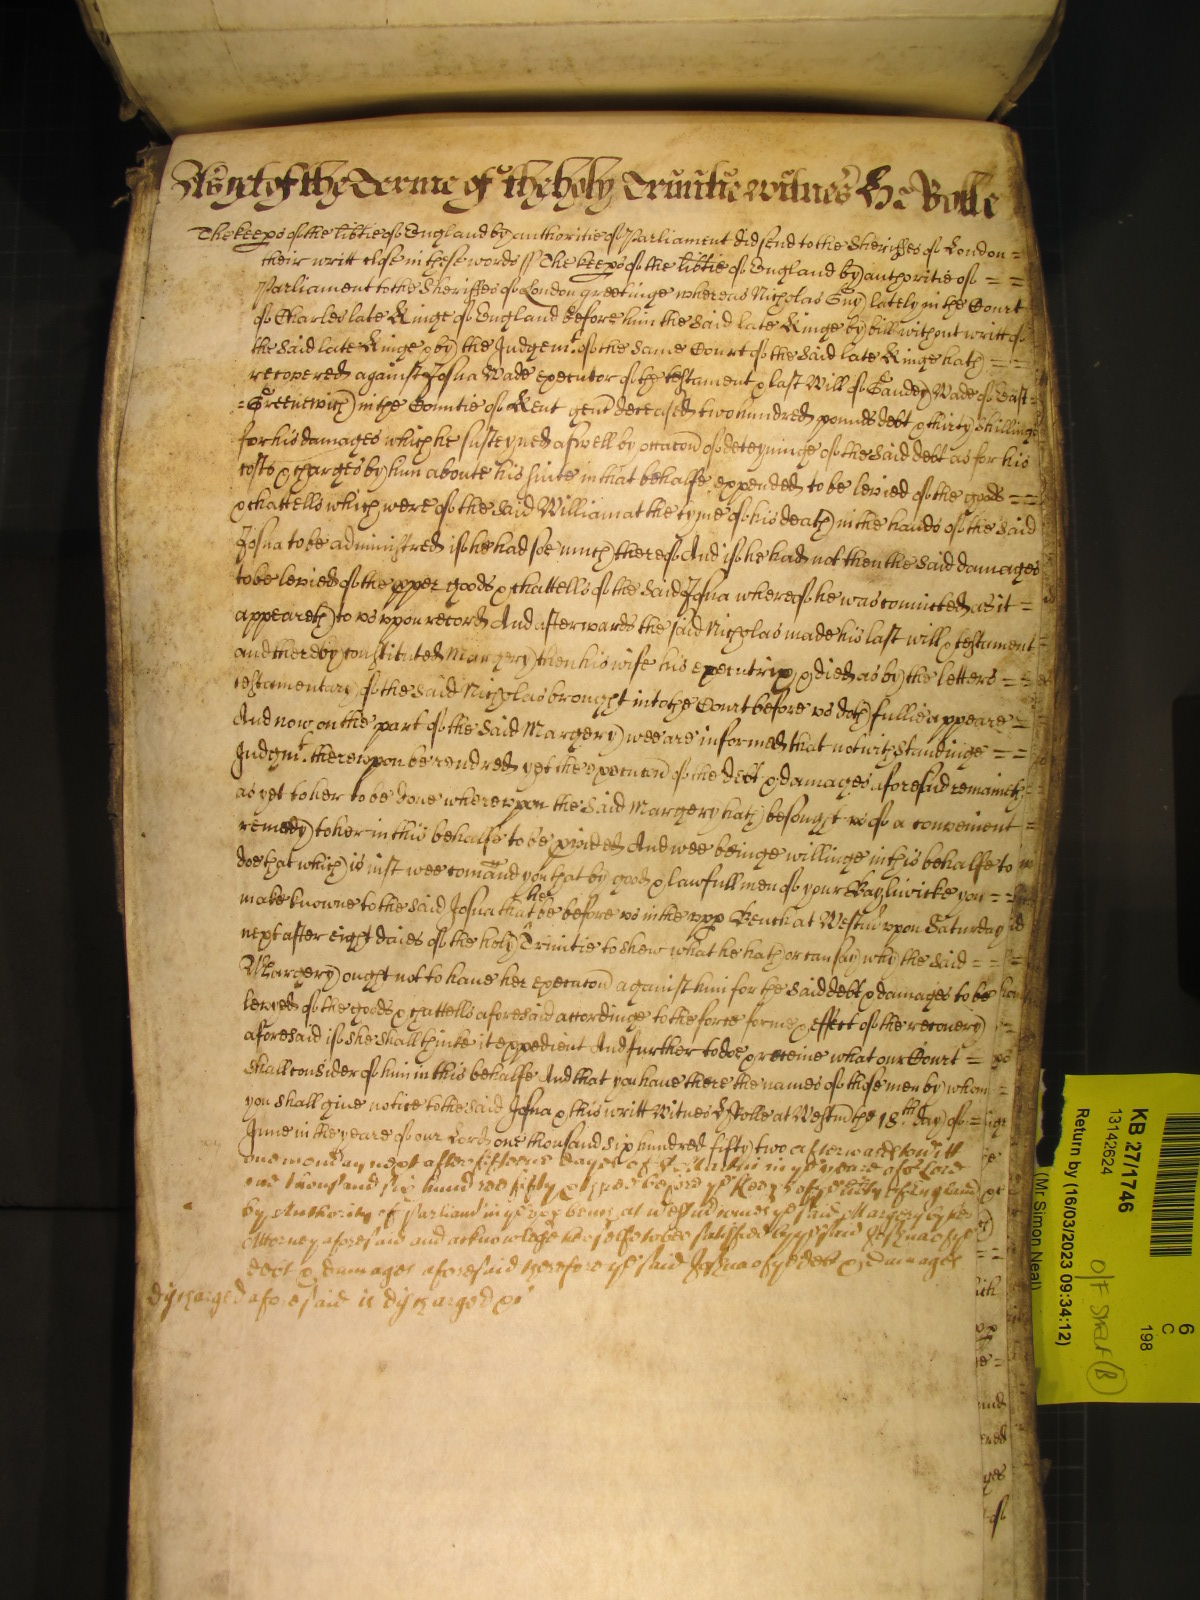 As yet of the Terme of the holy Trinitie witnes H: Rolle
The keeps of the lib'tie of England by authoritie of Parliament did send to the Sheriffes of London =
their writt close in these words // The keeps of the lib'tie of England by authoritie of = =
Parliament to the Sheriffes of London greetinge whereas Nicholas Guy lately in the Court
of Charles late Kinge of England before him the said late Kinge by bill without writt of
the said late Kinge & by the Judgem't of the same Court of the said late Kinge hath = =
recovered against Josua Wade executor of the testament & last Will of Wade of East =
= Greenewich in the Countie of Kent gent deceased two hundred pounds debt & thirty shillings
for his damages which he susteyned aswell by occacon of deteyninge of the said debt as for his
costs & charges by him aboute his suite in that behalfe expended to be levied of the goods = =
& chattells which were of the said William at the tyme of his death in the hands of the said
Josua to be administred if he had soe much thereof And if he had not then the said damages
to be levied of the pper goods & chattells of the said Josua whereof he was convicted as it =
appeareth to us uppon record And afterwards the said Nicholas made his last will & testament =
and thereby constituted Margery then his wife his executrix & died as by the letters = =
testamentary of the said Nicholas brought into the Court before us doth fullie appeare =
And now on the part of the said Margery wee are informed that notwithstandinge = =
Judgm't thereuppon be rendred yet the execucon of the debt & damages aforesaid remaineth
as yet to her to be done whereuppon the said Margery hath besought us of a convenient =
remedy to her in this behalfe to be pvided And wee beinge willinge in this behalfe to
doe that which is iust wee comand you that by good & lawfull men of your Baylywicke you = =
make knowne to the said Josua that he be before us in the upp Bench at Westm uppon Saturday
next after eight daies of the holy Trinitie to shew what he hath or can say why the said = =
Margery ought not to have her execucon against him for the said debt & damages to be
levied of the goods & chattells aforesaid accordinge to the force forme & effect of the recovery
aforesaid if she shall thinke it expedient And further to doe & receive what our Court =
shall consider of him in this behalfe And that you have there the names of those men by whom
you shall give notice to the said Josua & this writt Witnes H Rolle at Westm the 18th day of =
June in the yeare of our Lord one thousand six hundred fifty two afterwards to witt
one monday next after fifteene dayes of St Martin in ye yeare of or Lord
one thousand six hundred fifty & before ye Keeps of ye lib'ty of England
by Authority of Parliam't in ye upp bench at westm comes ye said Margery by her
Attorney aforesaid and acknowledge her selfe to bee satisfied by ye said Joshua of ye
debt & damages aforesaid therefore ye said Joshua of ye debt & damages
dyscharged aforesaid is dyscharged &c
KB 27/1746
13142624
Return by (16/03/2023 09:34:12)
(Mr Simon Neal)
6
C
198